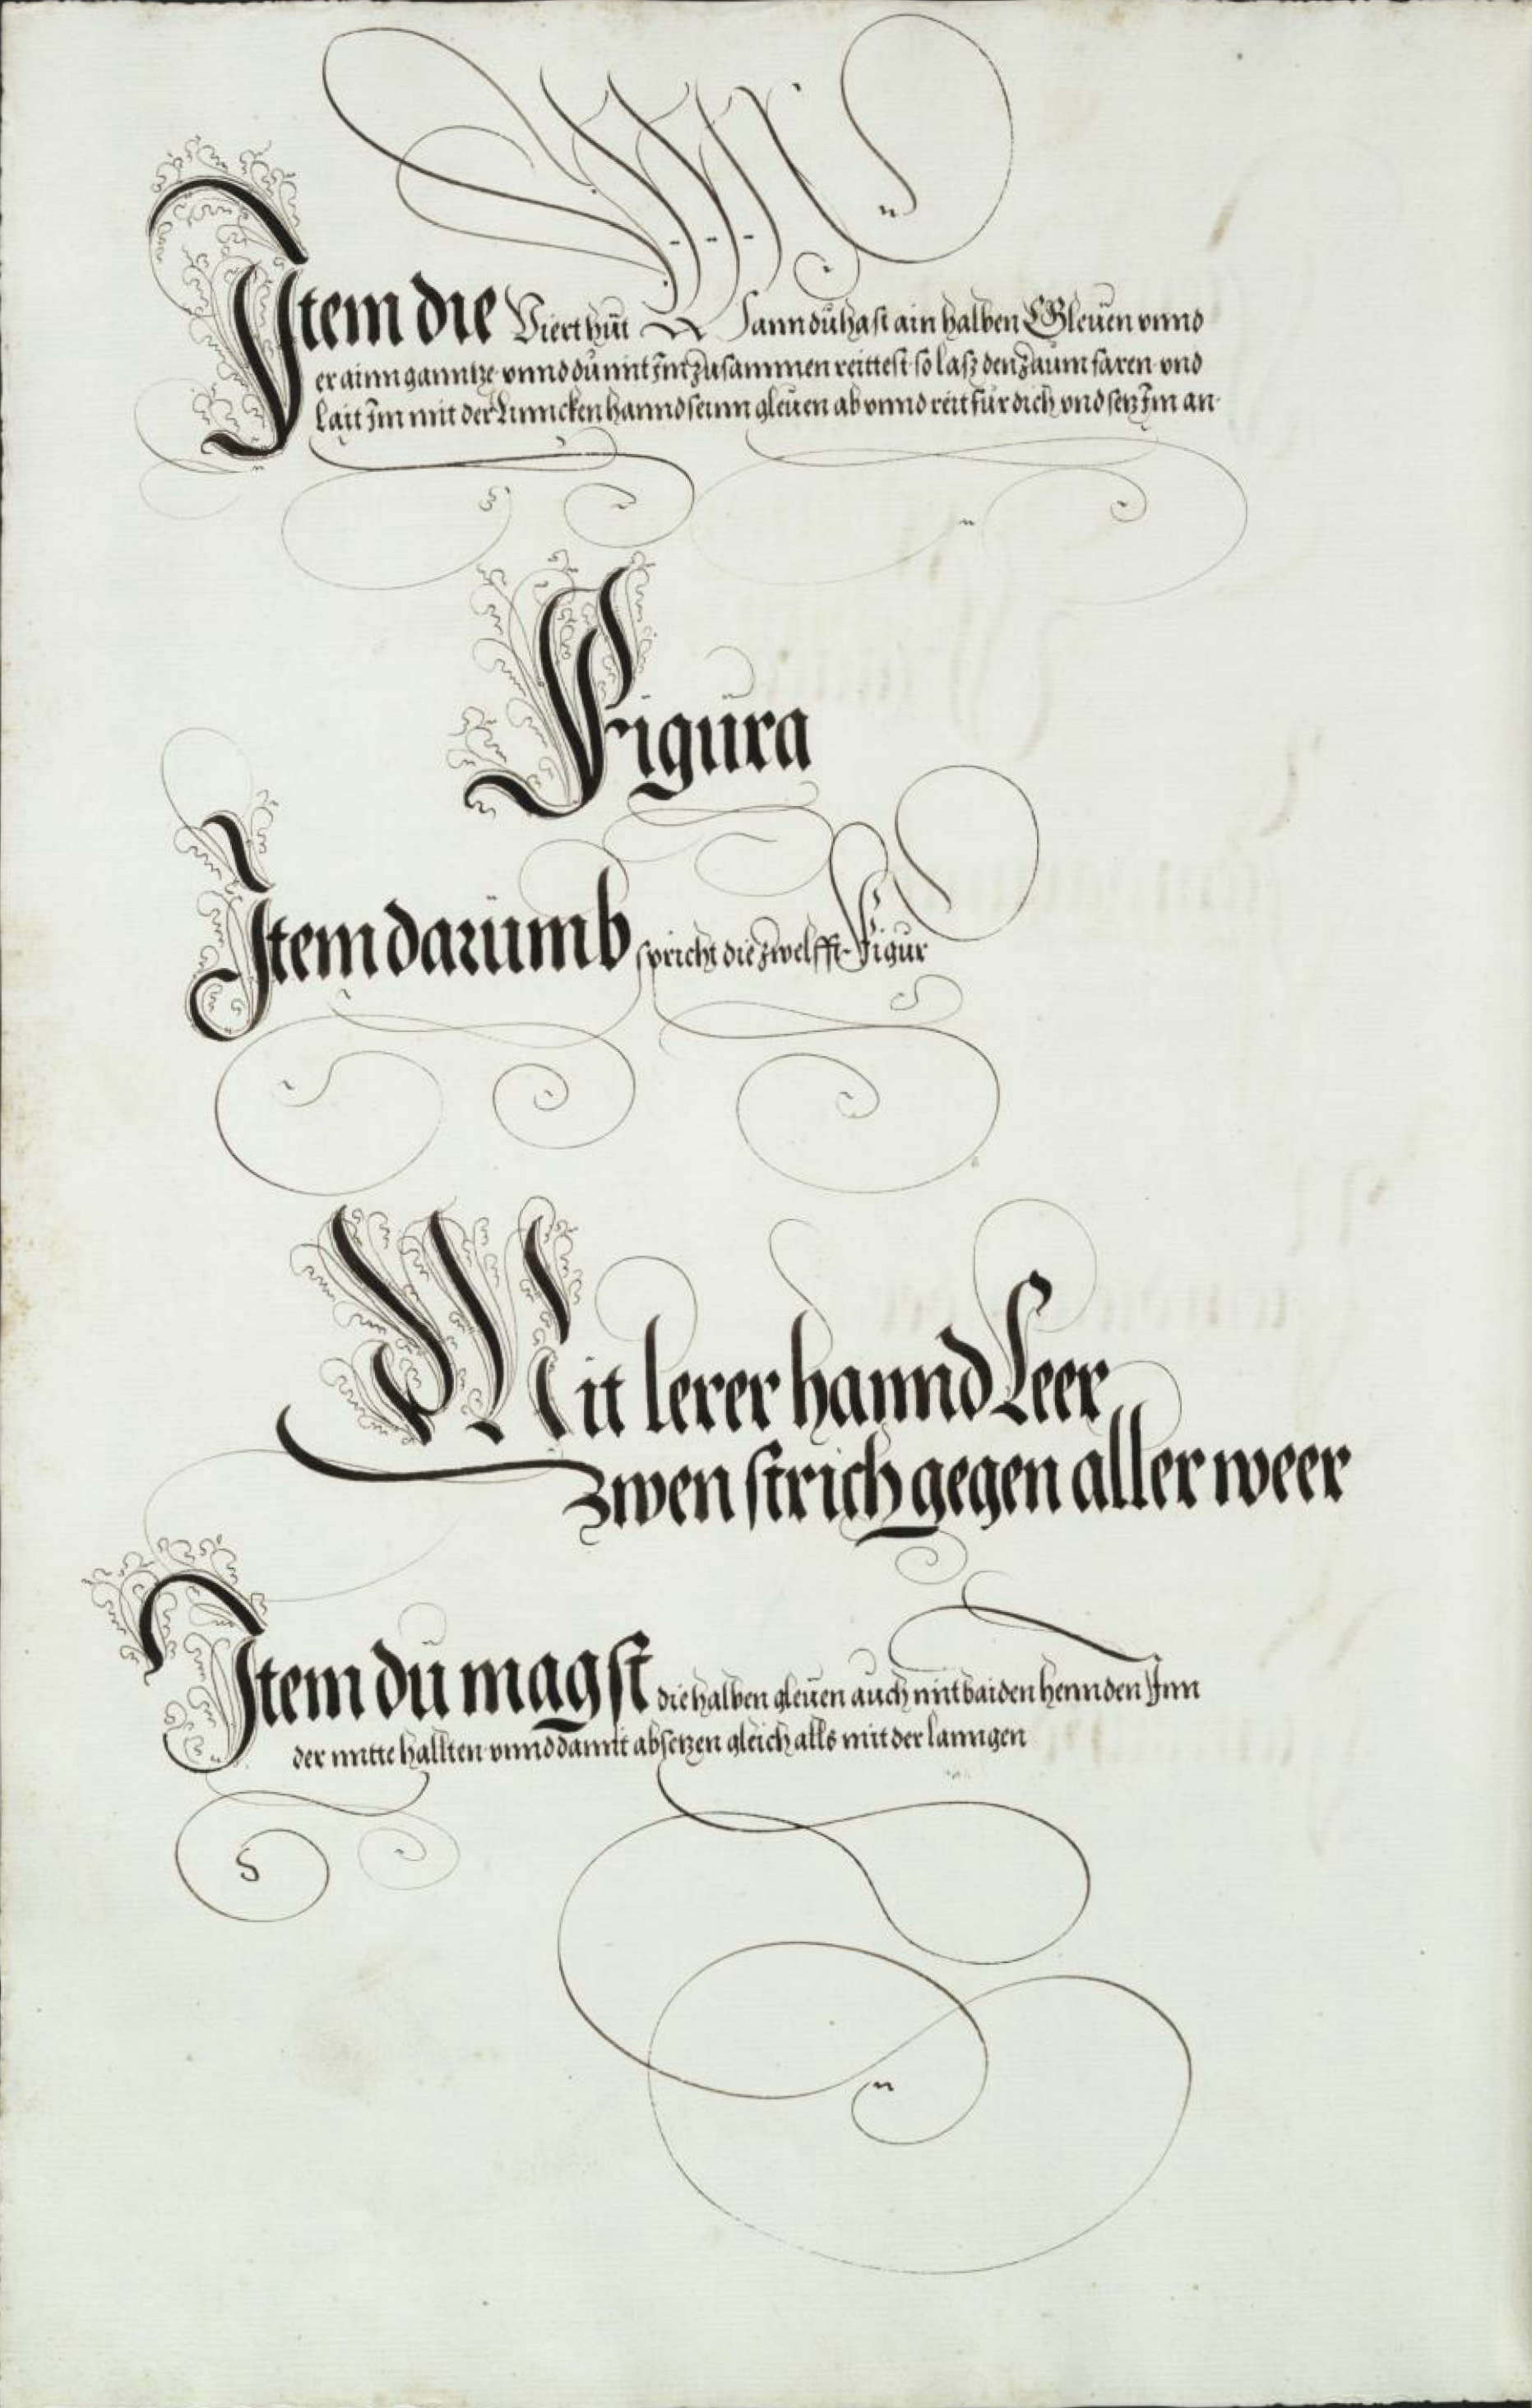 Item die Viert hüt Wann dü hast ain halben Gleüen vnnd
er ainn ganntze vnnd dü mit Im zusammen reittest so lasz den zaum faren vnd
lait Im mit der Linncken hannd seinn gleüen ab vnnd reit für dich vnd setz Im an
Figüra
Item darümb spricht die zwelfft Figur
Mit lerer hannd Leer
zwen strich gegen aller weer
Item dü magst die halben gleüen auch mit baiden hennden Inn
der mitte hallten vnnd damit absetzen gleich alls mit der lanngen